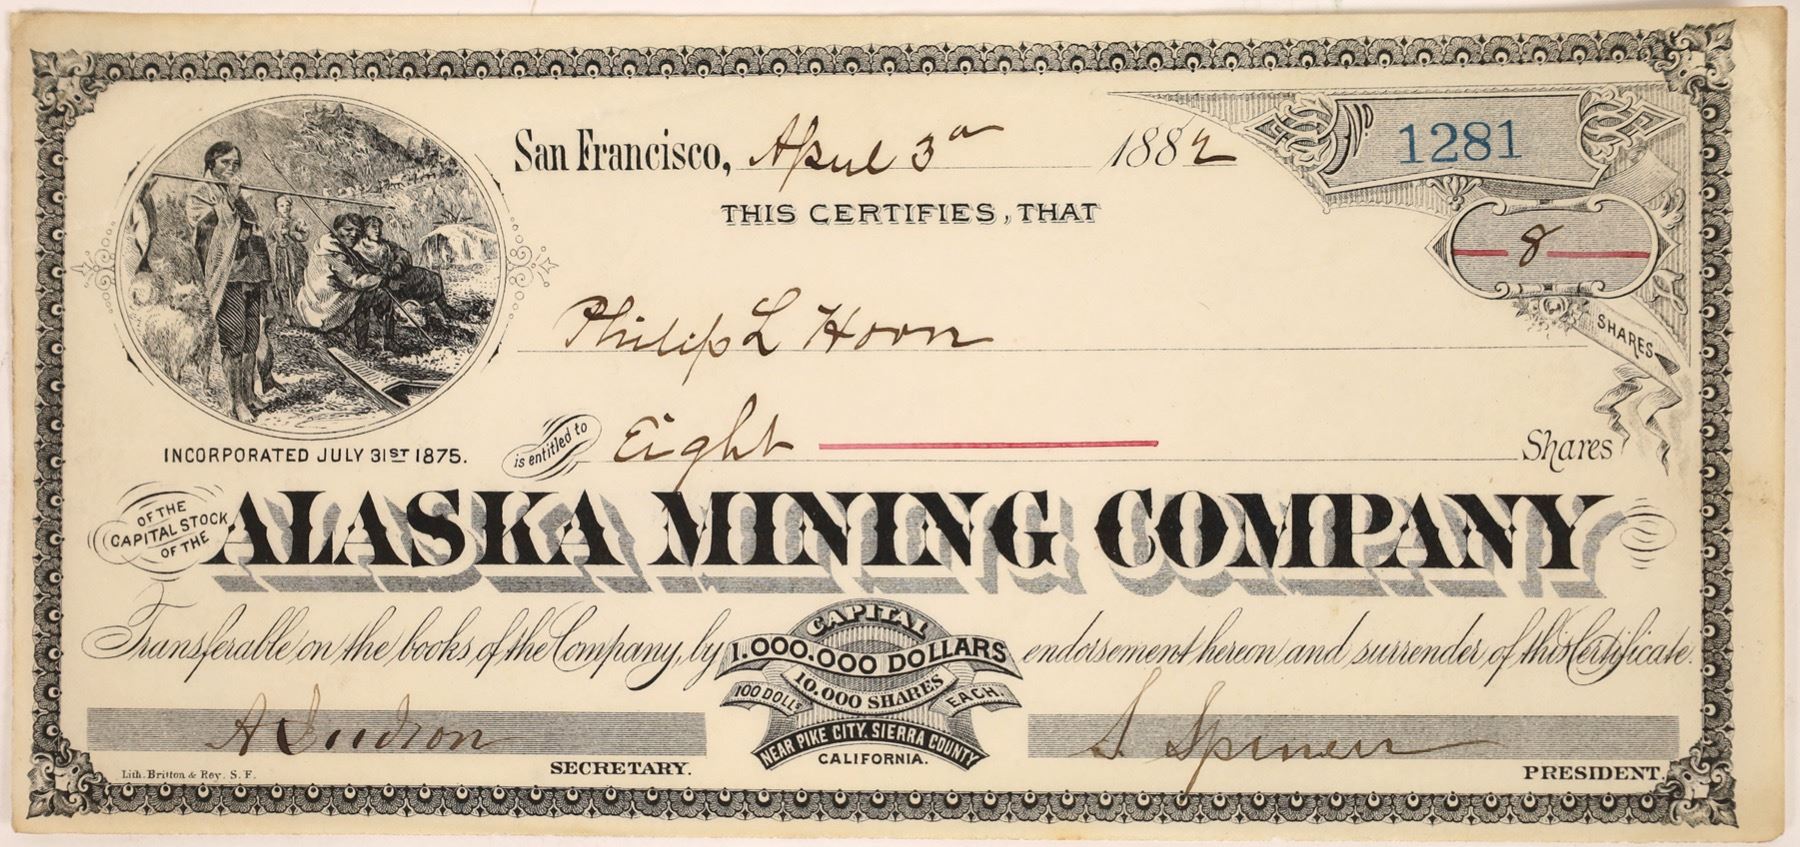 San Francisco, April 3d 1882
No 1281
THIS CERTIFIES, THAT
8
SHARES
Philip L Hoon
INCORPORATED JULY 31ST 1875.
is entitled to Eight Shares
OF THE CAPITAL STOCK OF THE
ALASKA MINING COMPANY
Transferable on the books of the Company, by endorsement hereon and surrender of this Certificate.
CAPITAL
1.000.000 DOLLARS
10.000 SHARES
100 DOLLS EACH.
NEAR PIKE CITY, SIERRA COUNTY
CALIFORNIA.
A Judson
SECRETARY.
S.
PRESIDENT.
Lith. Britton & Rey. S. F.